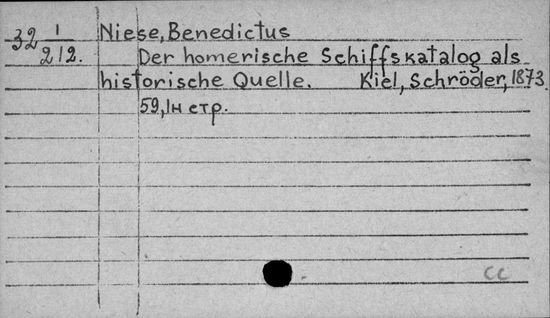 32 1/212.
Niese, Benedictus
Der homerische Schiffskatalog als
historische Quelle. Kiel, Schröder, 1873.
59, Iн стр.
CC